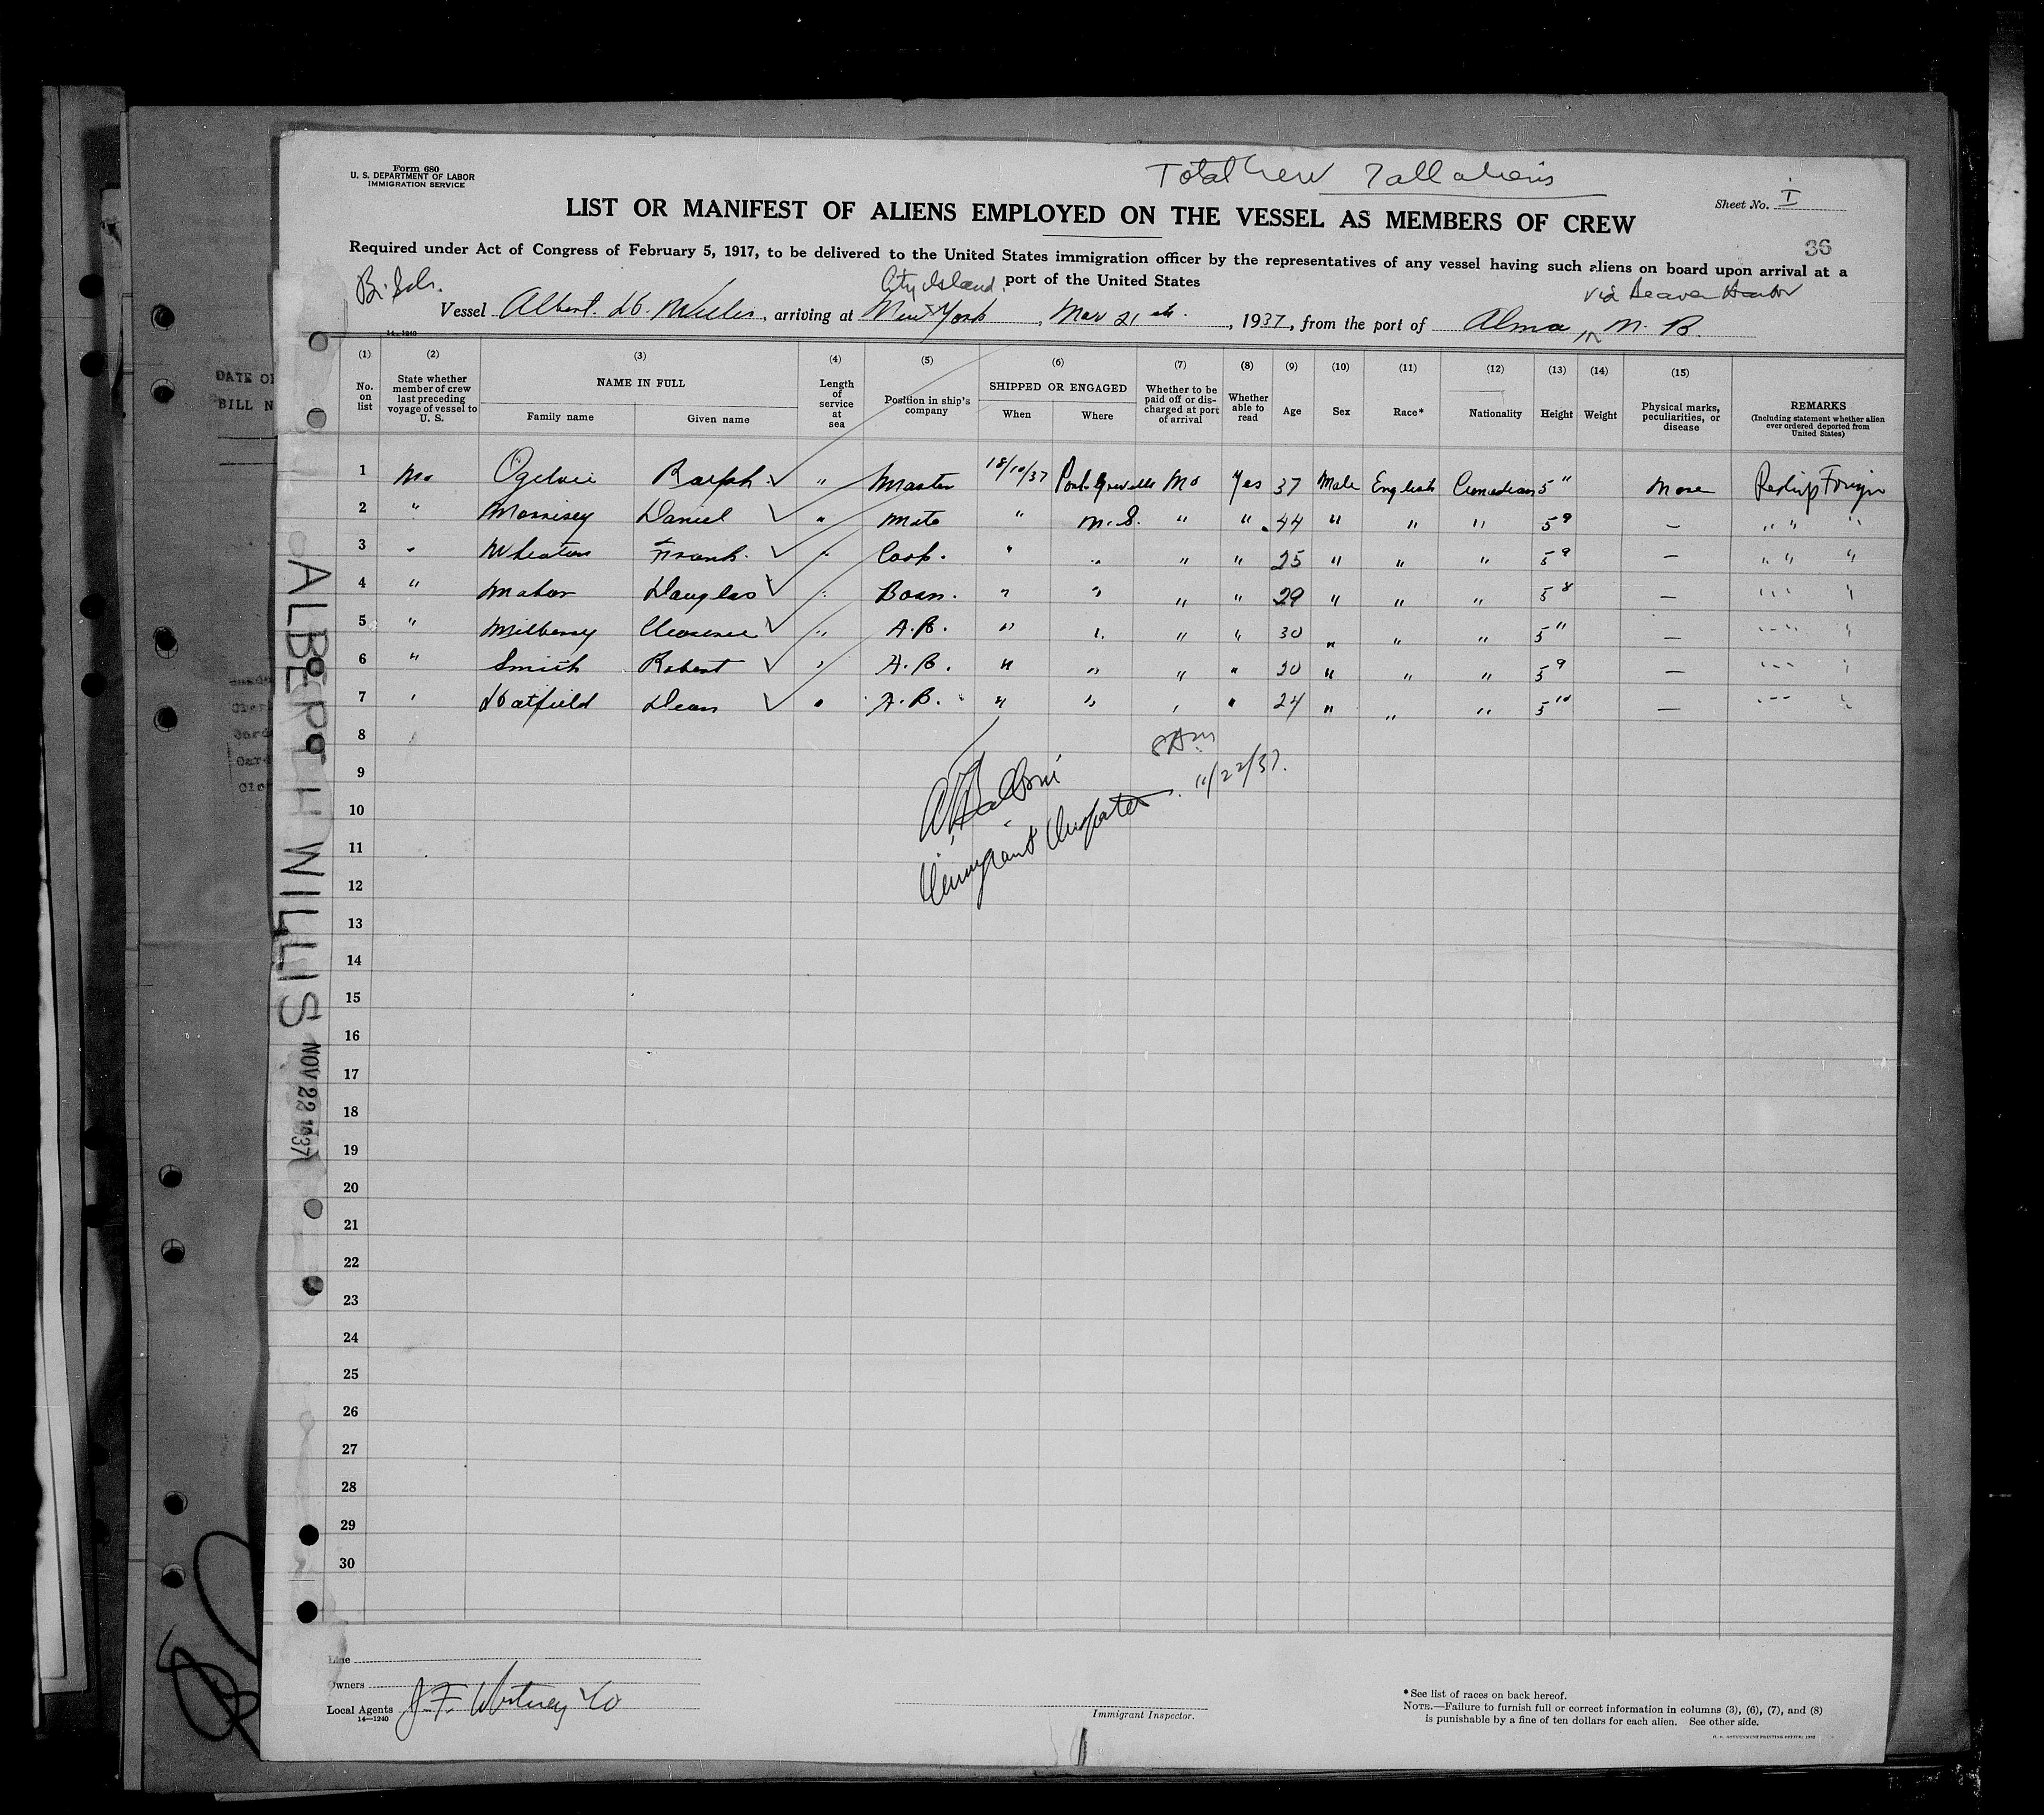 Form 680
U. S. DEPARTMENT OF LABOR
IMMIGRATION SERVICE
Total Crew 7 all aliens
Sheet No. I
LIST OR MANIFEST OF ALIENS EMPLOYED ON THE VESSEL AS MEMBERS OF CREW
36
Required under Act of Congress of February 5, 1917, to be delivered to the United States immigration officer by the representatives of any vessel having such aliens on board upon arrival at a
port of the United States
Br. Sch. City Island, via Beaver Harbor
Vessel Albert H. Willis, arriving at New York, Nov 21 st., 1937, from the port of Alma, N. B.
14—1240
(1) (2) (3) (4) (5) (6) (7) (8) (9) (10) (11) (12) (13) (14) (15)
No. on list
State whether member of crew last preceding voyage of vessel to U. S.
NAME IN FULL
Family name Given name
Length of service at sea
Position in ship's company
SHIPPED OR ENGAGED
When Where
Whether to be paid off or discharged at port of arrival
Whether able to read
Age
Sex
Race*
Nationality
Height
Weight
Physical marks, peculiarities, or disease
REMARKS
(Including statement whether alien ever ordered deported from United States)
1 No Ogilvie Ralph " Master 18/10/37 Port Greville No Yes 37 Male English Canadian 5 11 None Reship Foreign
2 " Morrisey Daniel " Mate " N. S. " " 44 " " " 5 9 — " " "
3 " Wheaton Frank " Cook. " " " " 25 " " " 5 9 — " " "
4 " Mahar Douglas " Bosn. " " " " 29 " " " 5 8 — " " "
5 " Milberry Clarence " A.B. " " " " 30 " " " 5 11 — " " "
6 " Smith Robert " A.B. " " " " 20 " " " 5 9 — " " "
7 " Hatfield Dean " A.B. " " " " 24 " " " 5 10 — " " "
8
9
10
11
12
13
14
15
16
17
18
19
20
21
22
23
24
25
26
27
28
29
30
8 Am
Immigrant Inspector. 11/22/37.
ALBERT H WILLIS NOV 22 1937
Line
Owners
Local Agents J. F. Whitney Co
14—1240
Immigrant Inspector.
*See list of races on back hereof.
NOTE.—Failure to furnish full or correct information in columns (3), (6), (7), and (8)
is punishable by a fine of ten dollars for each alien. See other side.
DATE OF
BILL N